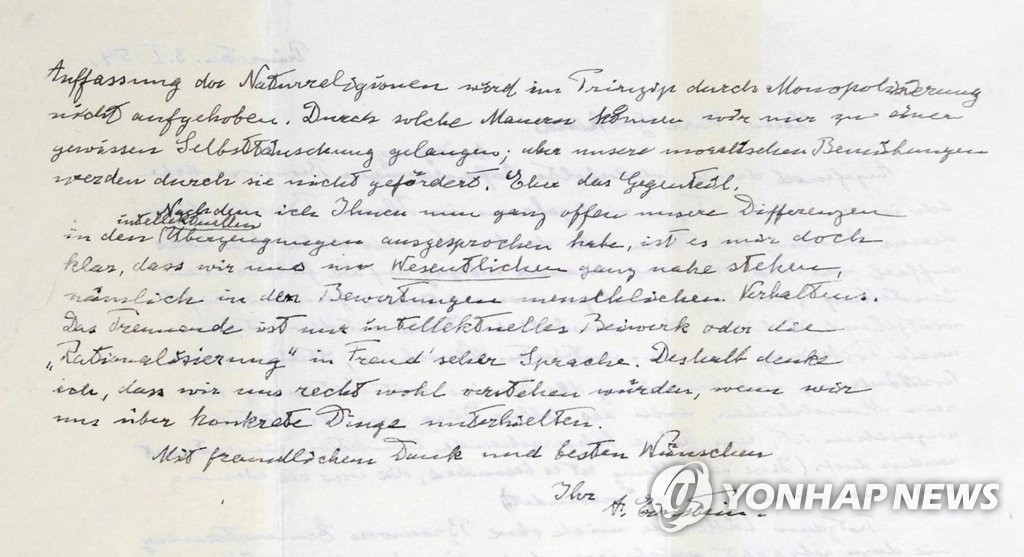 Auffassung der Naturreligionen wird im Prinzip durch Monopolisierung
nicht aufgehoben. Durch solche Mauern können wir nur zu einer
gewissen Selbsttäuschung gelangen; aber unsere moralischen Bemühungen
werden durch sie nicht gefördert. Eher das Gegenteil.
Nachdem ich Ihnen nun ganz offen unsere Differenzen
intellektuellen
in den Überzeugungen ausgesprochen habe, ist es mir doch
klar, dass wir uns im Wesentlichen ganz nahe stehen,
nämlich in den Bewertungen menschlichen Verhaltens.
Das Trennende ist nur intellektuelles Beiwerk oder die
„Rationalisierung" in Freud'scher Sprache. Deshalb denke
ich, dass wir uns recht wohl verstehen würden, wenn wir
uns über konkrete Dinge unterhielten.
Mit freundlichem Dank und besten Wünschen
Ihr
A. Einstein.
YONHAP NEWS